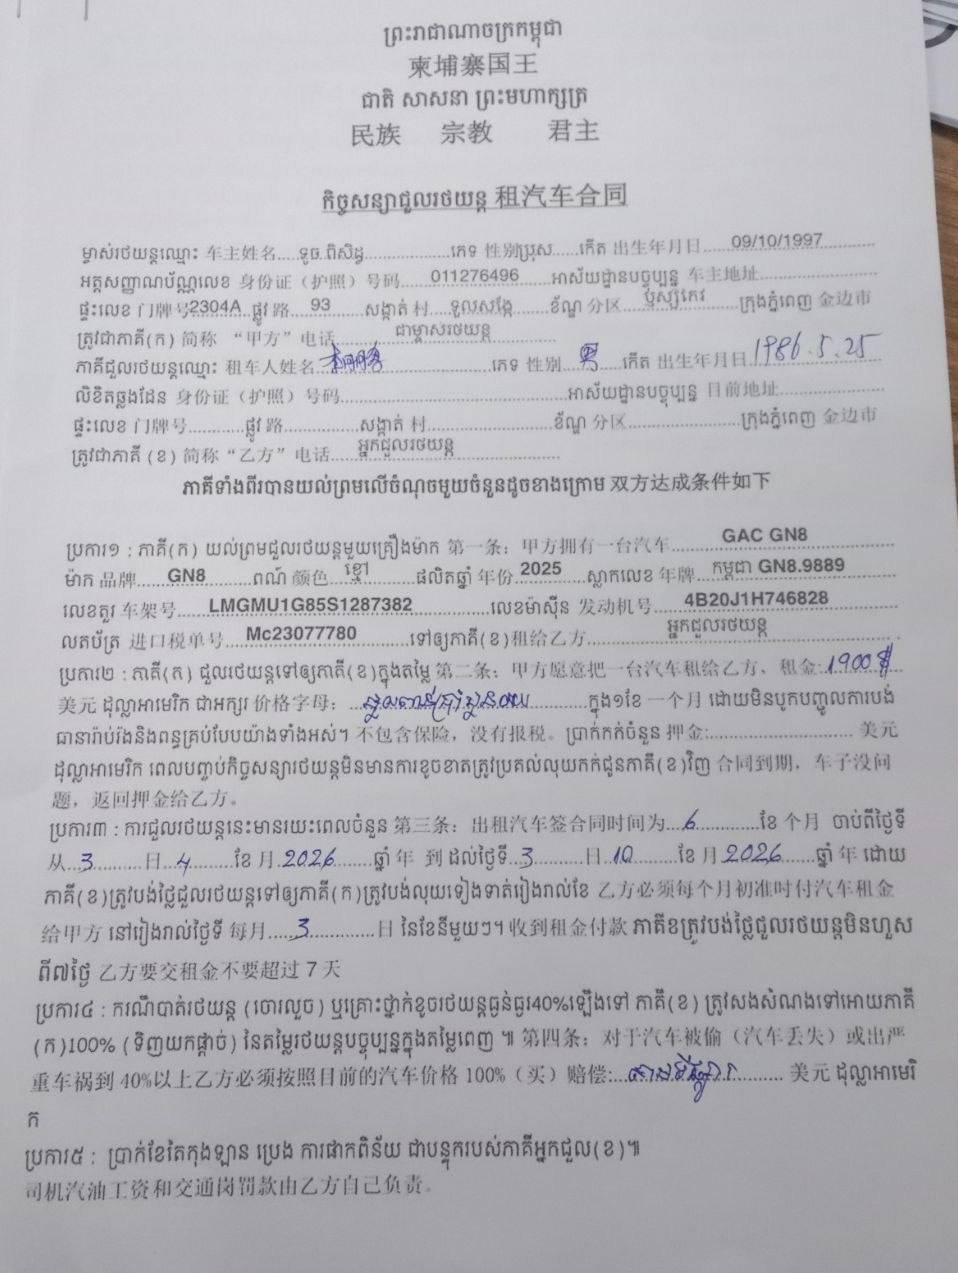 ព្រះរាជាណាចក្រកម្ពុជា
柬埔寨国王
ជាតិ សាសនា ព្រះមហាក្សត្រ
民族 宗教 君主
កិច្ចសន្យាជួលរថយន្ត 租汽车合同
ម្ចាស់រថយន្តឈ្មោះ 车主姓名....ទូច.ពិសិដ្ឋ..............ភេទ 性别ប្រុស.....កើត 出生年月日....09/10/1997..........
អត្តសញ្ញាណប័ណ្ណលេខ 身份证（护照）号码......011276496........អាស័យដ្ឋានបច្ចុប្បន្ន 车主地址...................
ផ្ទះលេខ 门牌号2304A..ផ្លូវ 路......93......សង្កាត់ 村....ទួលសង្កែ.......ខ័ណ្ឌ 分区....ឬស្សីកែវ......ក្រុងភ្នំពេញ 金边市
ត្រូវជាភាគី(ក) 简称 “甲方” 电话...........ជាម្ចាស់រថយន្ត............
ភាគីជួលរថយន្តឈ្មោះ 租车人姓名..............................ភេទ 性别...男....កើត 出生年月日.1986.5.25
លិខិតឆ្លងដែន 身份证（护照）号码........................................អាស័យដ្ឋានបច្ចុប្បន្ន 目前地址...................
ផ្ទះលេខ 门牌号............ផ្លូវ 路................សង្កាត់ 村......................ខ័ណ្ឌ 分区....................ក្រុងភ្នំពេញ 金边市
ត្រូវជាភាគី (ខ) 简称 “乙方” 电话.....អ្នកជួលរថយន្ត..................
ភាគីទាំងពីរបានយល់ព្រមលើចំណុចមួយចំនួនដូចខាងក្រោម 双方达成条件如下
ប្រការ១ : ភាគី(ក) យល់ព្រមជួលរថយន្តមួយគ្រឿងម៉ាក 第一条：甲方拥有一台汽车.........GAC GN8...............
ម៉ាក 品牌......GN8........ពណ៌ 颜色...ខ្មៅ........ផលិតឆ្នាំ 年份.2025....ស្លាកលេខ 年牌...កម្ពុជា GN8.9889........
លេខតួរ 车架号......LMGMU1G85S1287382..............លេខម៉ាស៊ីន 发动机号......4B20J1H746828............
លតប័ត្រ 进口税单号...Mc23077780..........ទៅឲ្យភាគី(ខ)租给乙方............អ្នកជួលរថយន្ត...................
ប្រការ២ : ភាគី(ត) ជួលរថយន្តទៅឲ្យភាគី(ខ)ក្នុងតម្លៃ 第二条：甲方愿意把一台汽车租给乙方、租金:.1900 $
美元 ដុល្លាអាមេរិក ជាអក្សរ 价格字母：.............................. ក្នុង១ខែ 一个月 ដោយមិនបូកបញ្ចូលការបង់
ធានារ៉ាប់រ៉ងនិងពន្ធគ្រប់បែបយ៉ាងទាំងអស់។ 不包含保险，没有报税。ប្រាក់កក់ចំនួន 押金:............................ 美元
ដុល្លាអាមេរិក ពេលបញ្ចប់កិច្ចសន្យារថយន្តមិនមានការខូចខាតត្រូវប្រគល់លុយកក់ជូនភាគី(ខ)វិញ 合同到期，车子没问
题，返回押金给乙方。
ប្រការ៣ : ការជួលរថយន្តនេះមានរយះពេលចំនួន 第三条：出租汽车签合同时间为...6............ខែ 个月 ចាប់ពីថ្ងៃទី
从...3..........日...4........ខែ 月.2026.......ឆ្នាំ 年 到 ដល់ថ្ងៃទី..3..........日...10........ខែ 月 2026.......ឆ្នាំ 年 ដោយ
ភាគី(ខ)ត្រូវបង់ថ្លៃជួលរថយន្តទៅឲ្យភាគី(ក)ត្រូវបង់លុយទៀងទាត់រៀងរាល់ខែ 乙方必须每个月初准时付汽车租金
给甲方 នៅរៀងរាល់ថ្ងៃទី 每月.....3...............日 នៃខែនីមួយៗ។ 收到租金付款 ភាគីខត្រូវបង់ថ្លៃជួលរថយន្តមិនហួស
ពី៧ថ្ងៃ 乙方要交租金不要超过 7 天
ប្រការ៤ : ករណីបាត់រថយន្ត (ចោរលួច) ឬគ្រោះថ្នាក់ខូចរថយន្តធ្ងន់ធ្ងរ40%ឡើងទៅ ភាគី(ខ) ត្រូវសងសំណងទៅអោយភាគី
(ក)100% (ទិញយកផ្តាច់) នៃតម្លៃរថយន្តបច្ចុប្បន្នក្នុងតម្លៃពេញ ៕ 第四条：对于汽车被偷（汽车丢失）或出严
重车祸到 40%以上乙方必须按照目前的汽车价格 100%（买）赔偿:......................... 美元 ដុល្លាអាមេរិ
ក
ប្រការ៥ : ប្រាក់ខែតៃកុងឡាន ប្រេង ការផាកពិន័យ ជាបន្ទុករបស់ភាគីអ្នកជួល(ខ)៕
司机汽油工资和交通岗罚款由乙方自己负责。